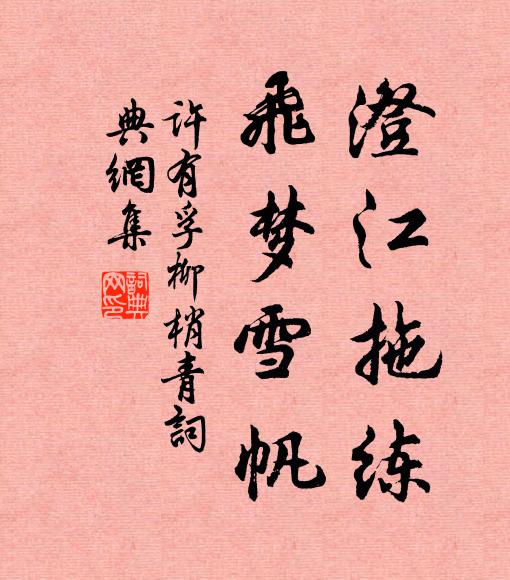 澄江拖练
飞梦雪帆
許有孚柳梢青詞
典網集
詞典
网印